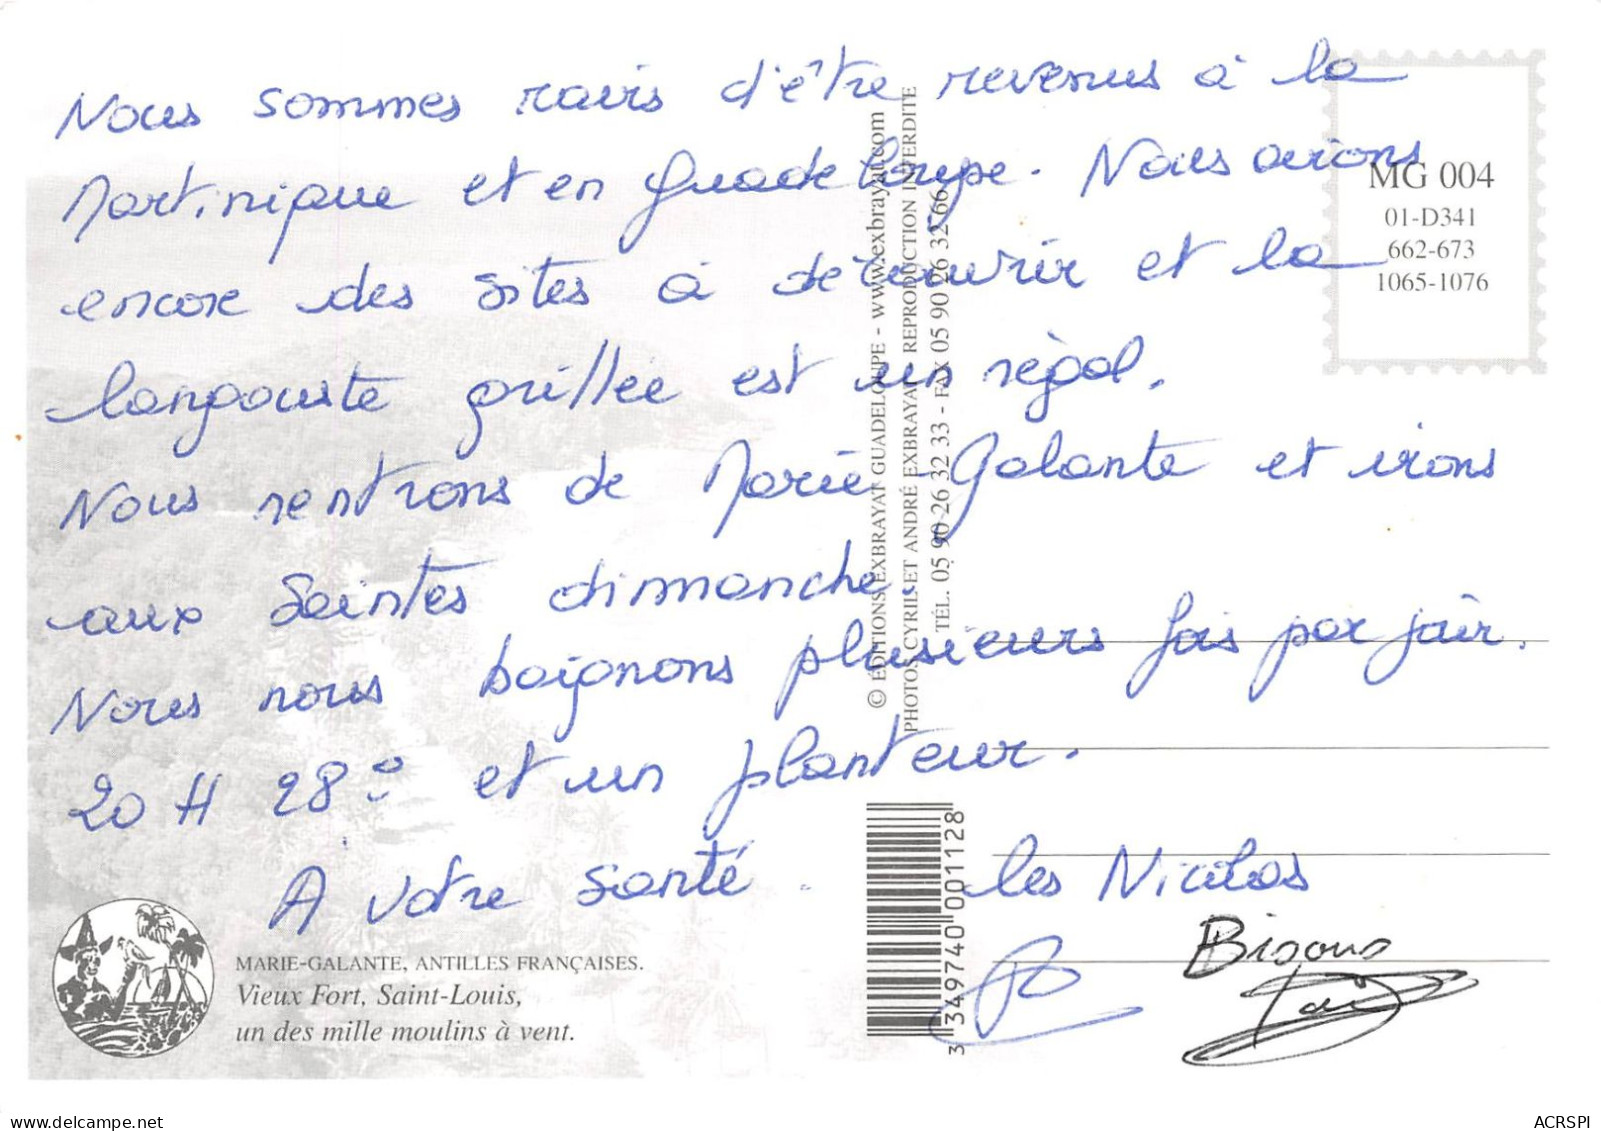 Nous sommes ravis d'être revenus à la
Martinique et en Guadeloupe. Nous avions
encore des sites à découvrir et la
langouste grillée est un régal.
Nous rentrons de Marie-Galante et irons
aux Saintes dimanche.
Nous nous baignons plusieurs fois par jour.
20 H 28° et un planteur.
A votre santé.
les Nicolas
Bisous
MG 004
01-D341
662-673
1065-1076
© EDITIONS EXBRAYAT GUADELOUPE - www.exbrayat.com
PHOTOS CYRILS ET ANDRÉ EXBRAYAT REPRODUCTION INTERDITE
TÉL. 05 90 26 32 33 - FAX 05 90 26 32 66
3 349740 001128
MARIE-GALANTE, ANTILLES FRANÇAISES.
Vieux Fort, Saint-Louis,
un des mille moulins à vent.
ACRSPI